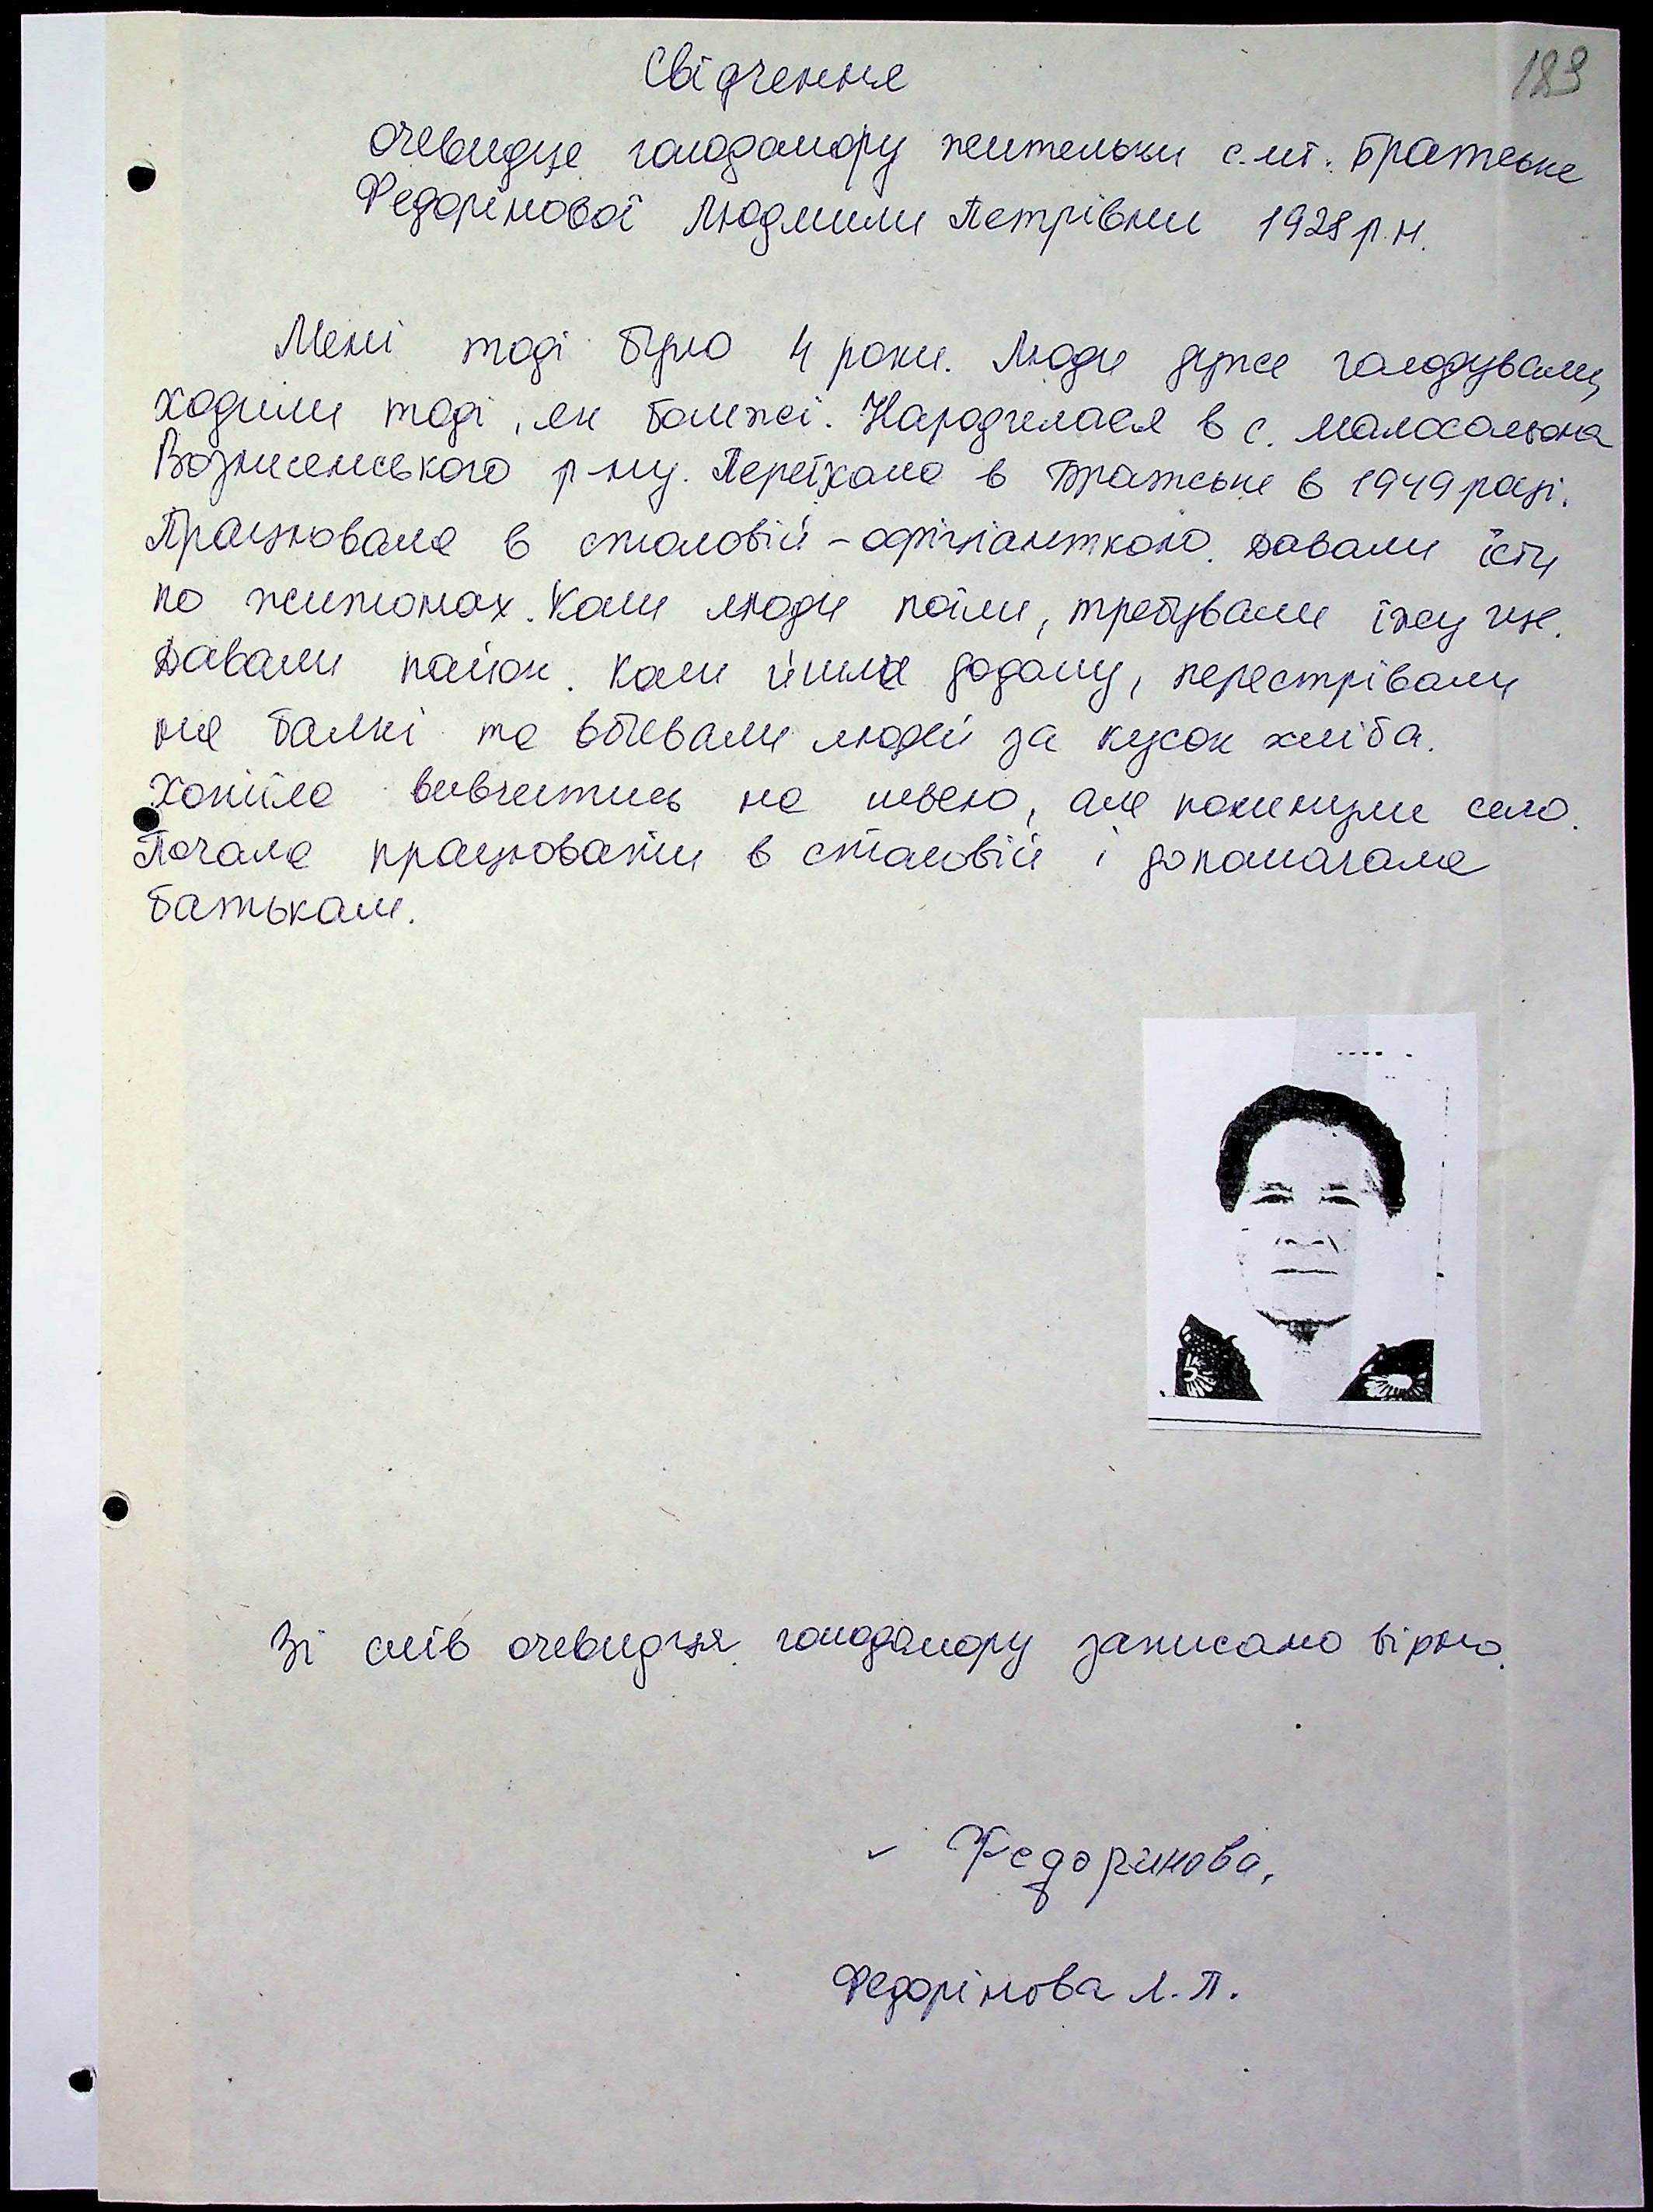 189
Свідчення
очевидця голодомору жительки с.мт. Братське
Федорінової Людмили Петрівни 1928 р.н.
Мені тоді було 4 роки. Люди дуже голодували,
ходили тоді, як бомжі. Народилася в с. Малосольона
Вознисенського р-ну. Переїхала в Братське в 1949 році.
Працювала в столовій - офіціанткою. Давали їсти
по житонах. Коли люди поїли, требували їжу ще.
Давали пайок. Коли йшла додому, перестрівали
на балкі та вбивали людей за кусок хліба.
Хотіла вивчитись на швею, але покинули село.
Почала працювати в столовій і допомагала
батькам.
Зі слів очевидця голодомору записано вірно.
Федоринова,
Федорінова Л.П.